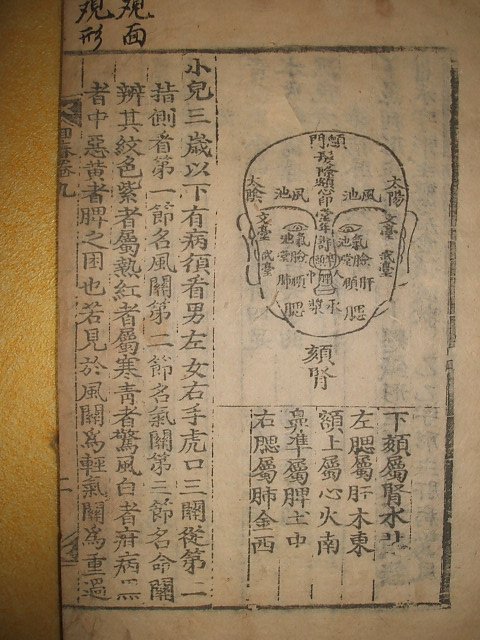 觀面
觀形
顖門
太陽
太陰
風池
風池
文臺
文臺
武臺
武臺
氣池
臉
臉
肝
肺
腮
腮
承漿
頦腎
下頦屬腎水北
左腮屬肝木東
額上屬心火南
鼻準屬脾土中
右腮屬肺金西
小兒三歲以下有病須看男左女右手虎口三關從第二
指側看第一節名風關第二節名氣關第三節名命關
辨其紋色紫者屬熱紅者屬寒靑者驚風白者疳病黑
者中惡黃者脾之困也若見於風關爲輕氣關爲重過
回春卷九